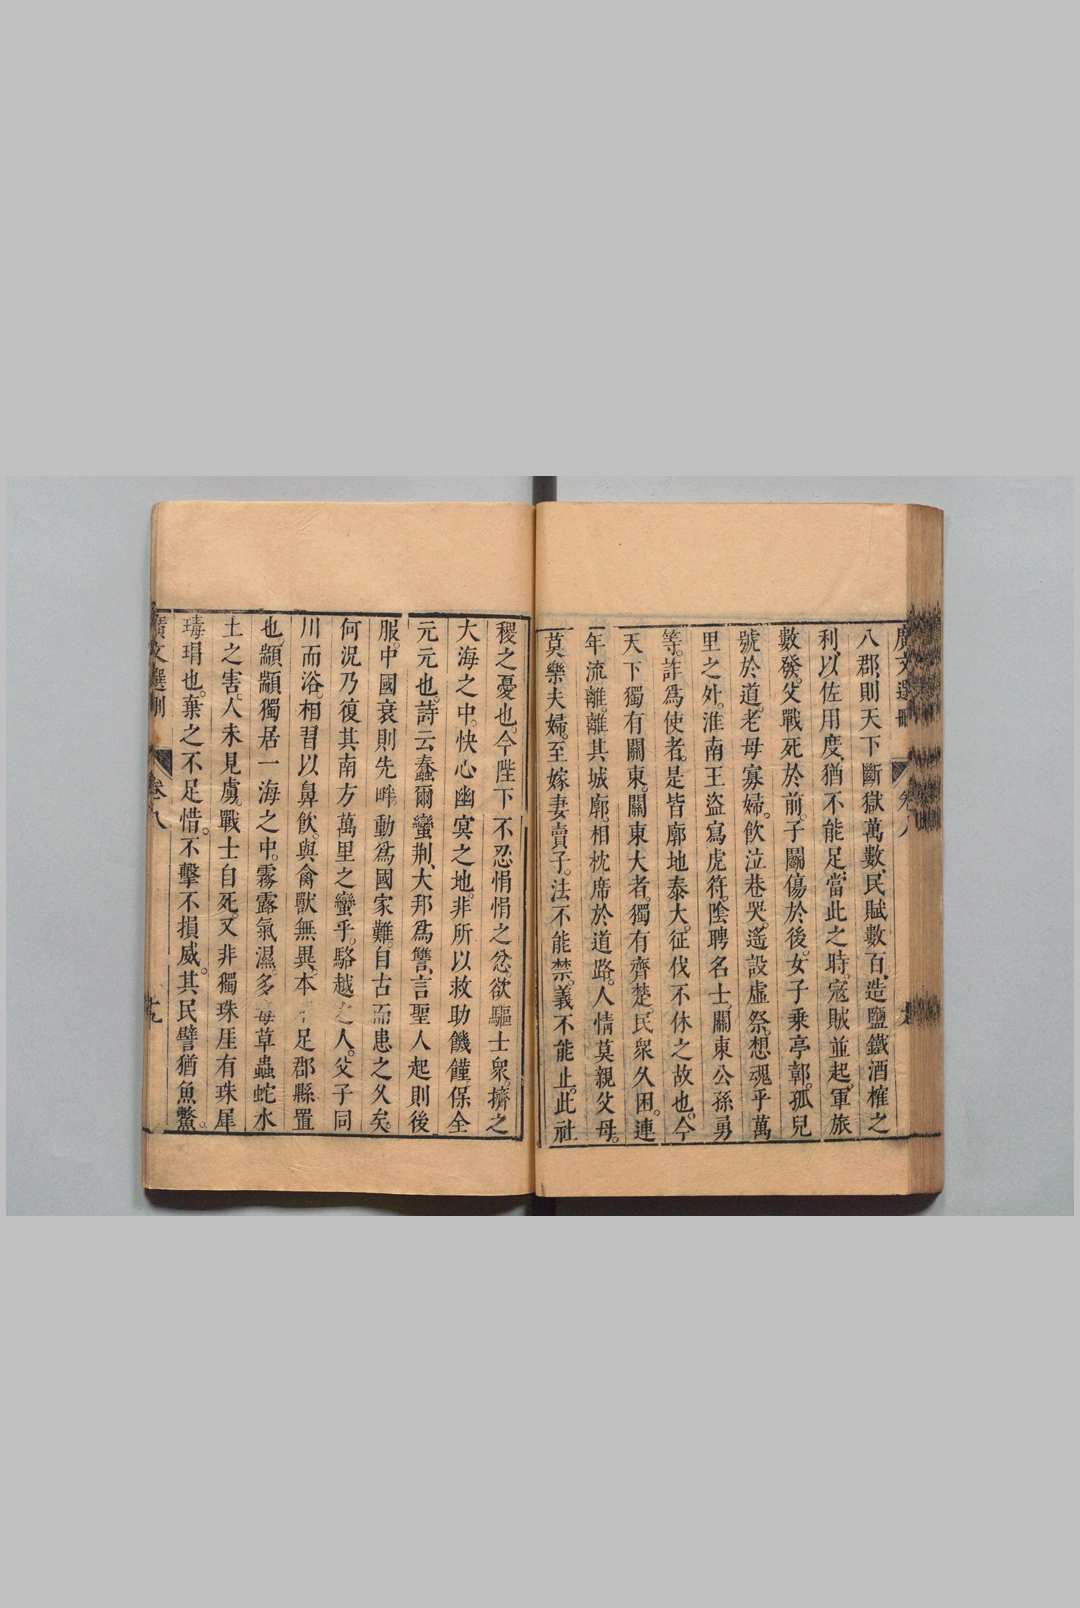 八郡則天下斷獄萬數、民賦數百、造鹽鐵酒榷之
利、以佐用度、猶不能足、當此之時、寇賊並起。軍旅
數發。父戰死於前。子鬬傷於後。女子乘亭鄣。孤兒
號於道。老母寡婦。飲泣巷哭。遙設虛祭。想魂乎萬
里之外。淮南王盜寫虎符。陰聘名士。關東公孫勇
等。詐爲使者。是皆廓地泰大。征伐不休之故也。今
天下獨有關東。關東大者。獨有齊楚。民衆久困。連
年流離。離其城廓。相枕席於道路。人情莫親父母。
莫樂夫婦。至嫁妻賣子。法不能禁。義不能止。此社
稷之憂也。今陛下不忍悁悁之忿欲驅士衆。擠之
大海之中。快心幽冥之地。非所以救助饑饉、保全
元元也。詩云蠢爾蠻荆、大邦爲讐、言聖人起則後
服。中國衰則先畔。動爲國家難。自古而患之久矣。
何況乃復其南方萬里之蠻乎。駱越之人。父子同
川而浴。相習以鼻飲。與禽獸無異、本 足郡縣置
也。顓顓獨居一海之中。霧露氣濕。多毒草蟲蛇水
土之害。人未見虜。戰士自死。又非獨珠厓有珠犀
瑇瑁也。棄之不足惜。不擊不損威。其民譬猶魚鱉。
廣文選刪
卷八
十九